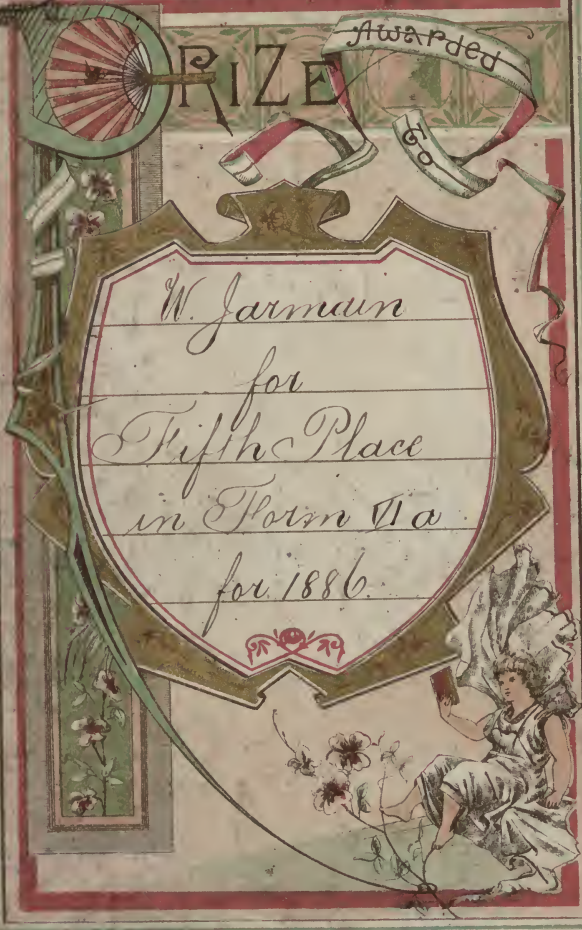 PRIZE
Awarded
to
W. Jarmain
for
Fifth Place
in Form VI a
for 1886.